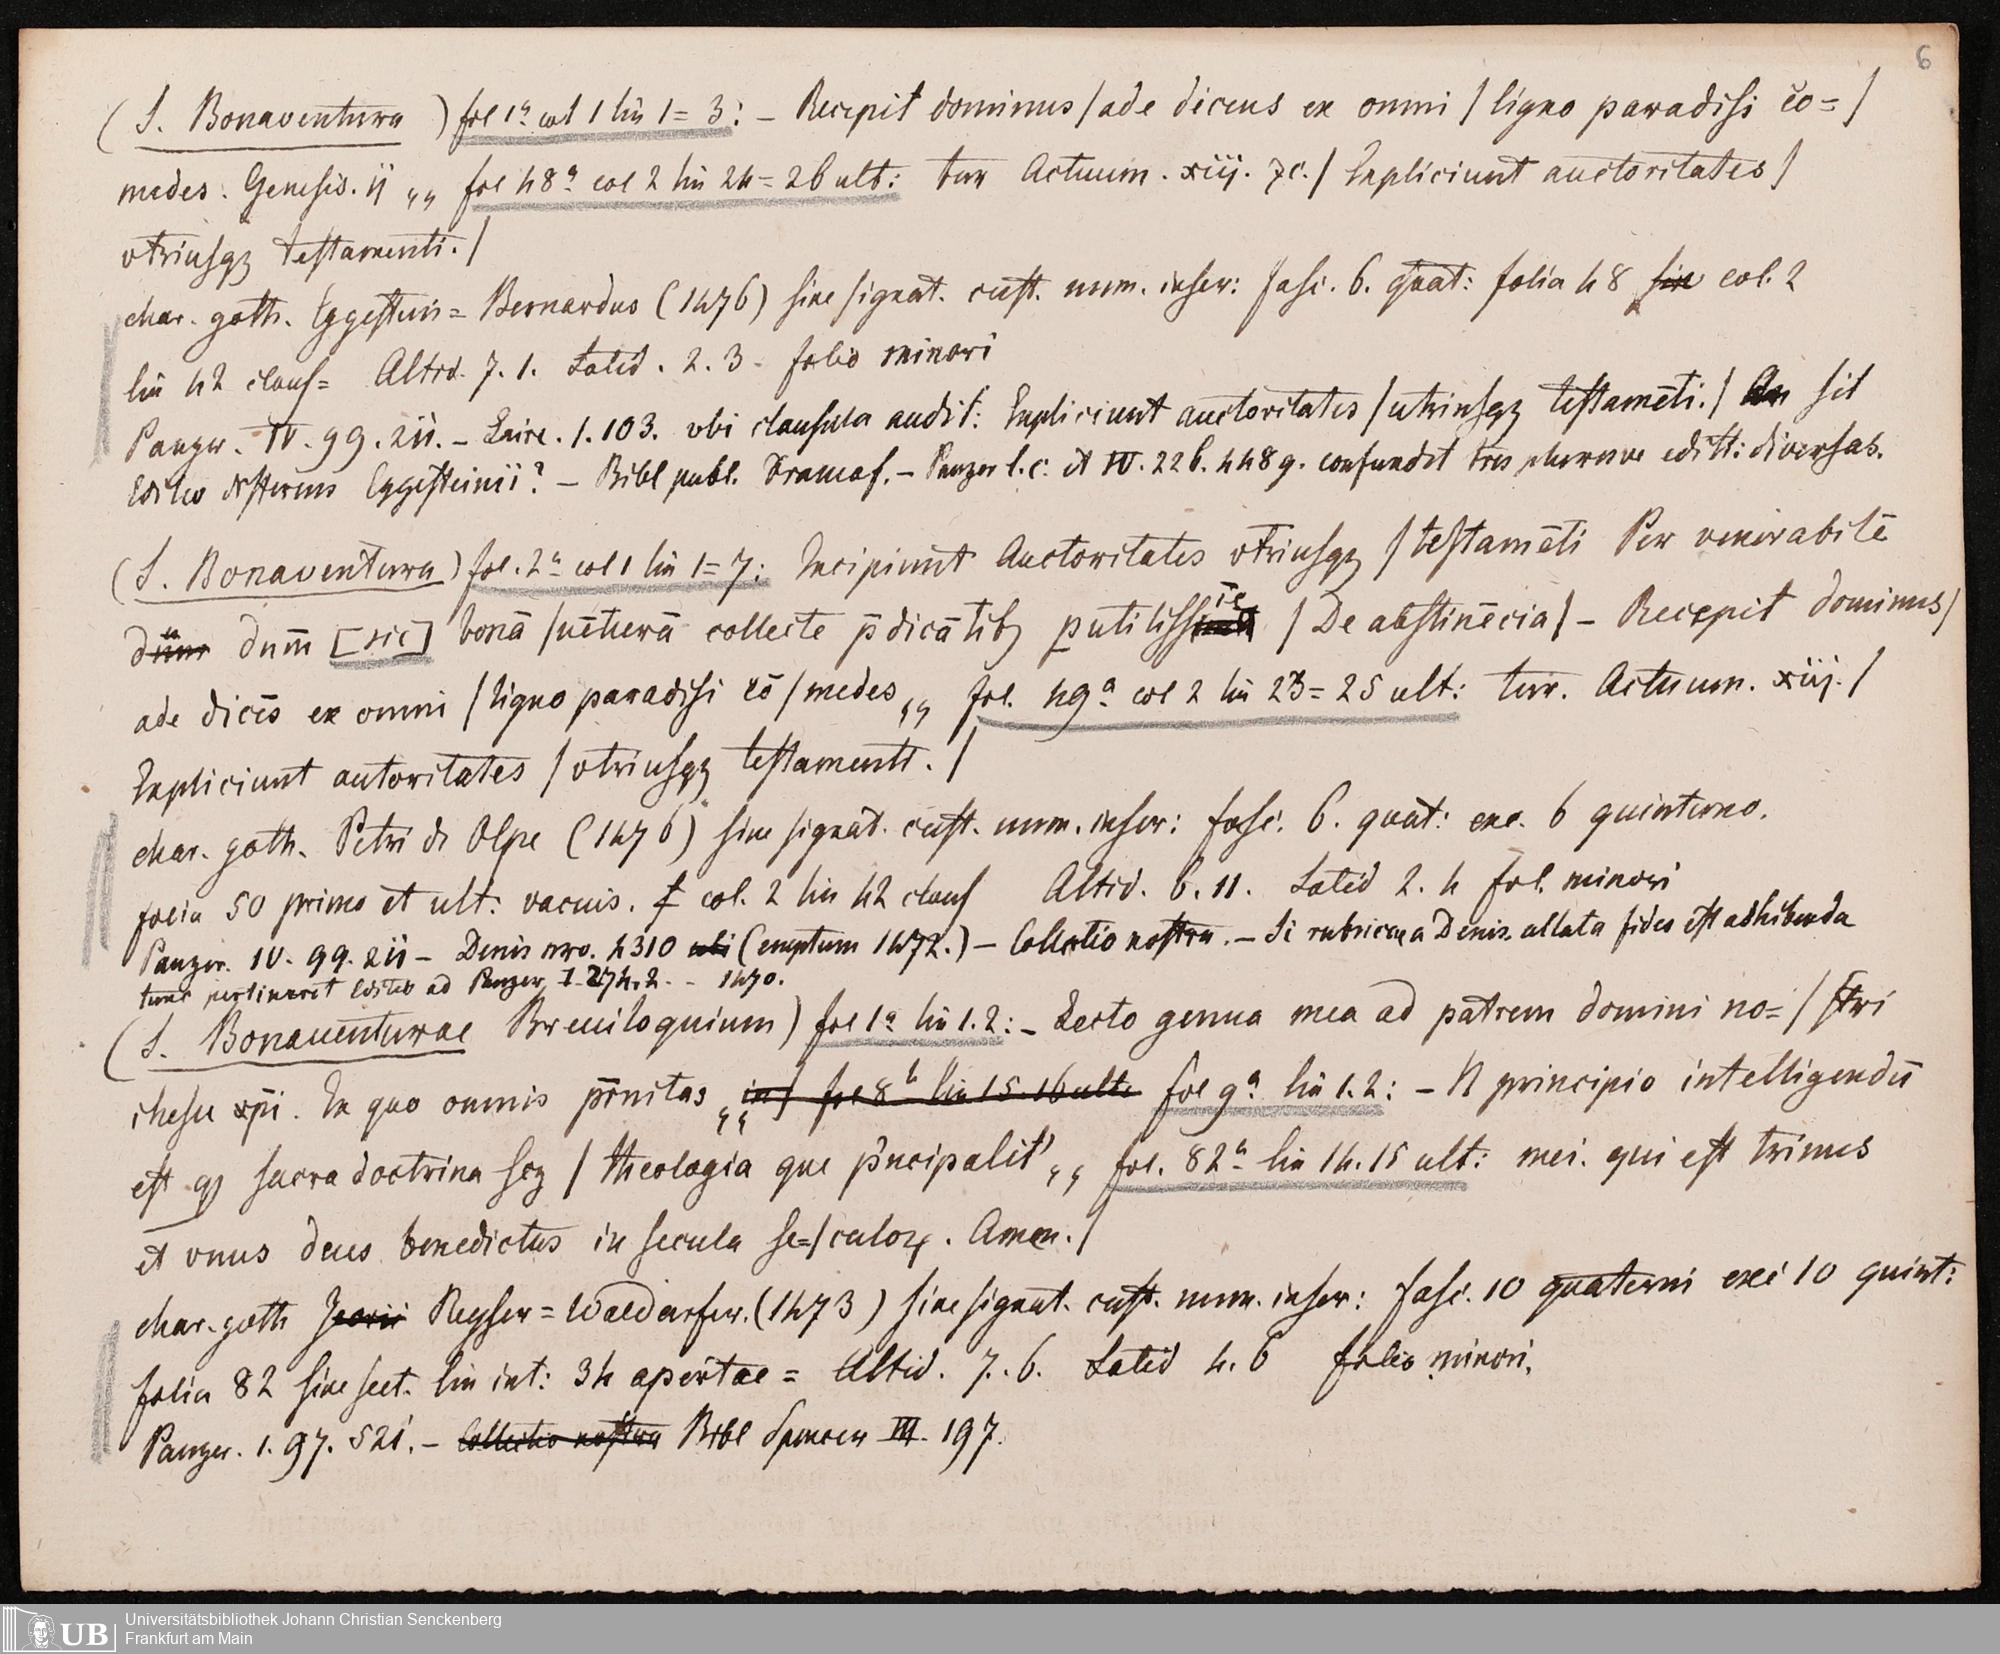 6
(S. Bonaventura ) fol 1ª col 1 lin 1=3: – Recepit dominus / ade dicens ex omni / ligno paradisi cō= /
medes. Genesis. ij „ fol 48ª col 2 lin 24=26 ult: tur Actuum. xiij. ꝛc. / Expliciunt auctoritates /
vtriusqꝫ testamenti. /
char. goth. Eggestein= Bernardus (1476) sine signat. cust. num. inser: fasc. 6. quat: folia 48 sin col. 2
lin 42 claus= Altid. 7. 1. Latid. 2. 3 – folio minori
Panzer. IV. 99. 211. – Laire. 1. 103. vbi clausula audit: Expliciunt auctoritates / utriusqꝫ testamēti. / An sit
Editio diversa Eggesteinii? – Bibl publ. Francof. – Panzer l. c. et IV. 226. 448 g. confundit tres pluresve editt: diversas.
(S. Bonaventura) fol. 2ª col 1 lin 1=7: Incipiunt Auctoritates vtriusqꝫ / testamēti Per venerabilē
dnm [sic] bonā / uēturā collecte p̄dicātibꝫ putiliss / De abstinēcia / – Recepit dominus /
ade dicēs ex omni / ligno paradisi cō / medes „ fol. 49ª col 2 lin 23=25 ult: tur. Actuum. xiij. /
Expliciunt autoritates / vtriusqꝫ testamenti. /
char. goth. Petri de Olpe (1476) sine signat. cust. num. inser: fasc. 6. quat: exc. 6 quinterno.
folia 50 primo et ult: vacuis. f col. 2 lin 42 claus Altid. 6. 11. Latid 2. 4 fol. minori
Panzer. IV. 99. 211 – Denis nro. 4310 ubi (emptum 1472.) – Collectio nostra. – Si rubricae a Denis. allata fides est adhibenda
tunc pertineret Editio ad Panzer. I. 274. 2. – 1470.
(S. Bonauenturae Breuiloquium) fol 1ª lin 1. 2: – Lecto genua mea ad patrem domini no= / stri
ihesu xp̄i. Ex quo omnis p̄rnitas „ in / fol 8ᵇ lin 15. 16 ult. fol 9ª lin 1. 2: – N principio intelligendū
est qꝫ sacra doctrina scꝫ / theologia que p̄ncipalit' „ fol. 82ª lin 14. 15 ult: mei. qui est trinus
et vnus deus benedictus in secula se= / culoꝝ. Amen. /
char. goth Reyser = Waldarfer. (1473) sine signat. cust. num. inser: fasc. 10 quaterni exc: 10 quint:
folia 82 sine sect. lin int: 34 apertae = Altid. 7. 6. Latid 4. 6 folio minori.
Panzer. 1. 97. 521. – Collectio nostra Bibl Spencer III. 197.
UB Universitätsbibliothek Johann Christian Senckenberg
Frankfurt am Main